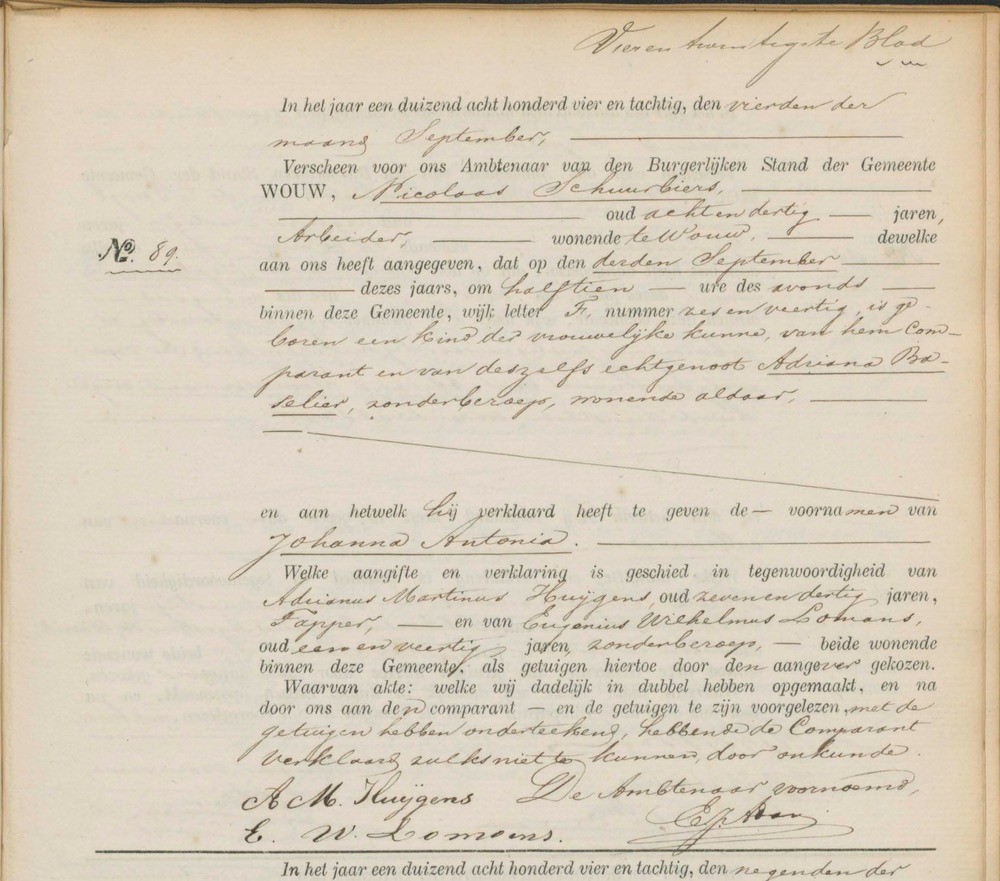 Vierentwintigste Blad
In het jaar een duizend acht honderd vier en tachtig, den vierden der
maand September,
Verscheen voor ons Ambtenaar van den Burgerlijken Stand der Gemeente
WOUW, Nicolaas Schuurbiers,
oud acht en dertig jaren,
Arbeider, wonende te Wouw, dewelke
No. 89.
aan ons heeft aangegeven, dat op den derden September
dezes jaars, om half tien ure des avonds
binnen deze Gemeente, wijk letter F, nummer zes en veertig, is ge-
boren een kind der vrouwelijke kunne, van hem Com-
parant en van deszelfs echtgenoot Adriana Ba-
selier, zonder beroep, wonende aldaar,
en aan hetwelk hij verklaard heeft te geven de voornamen van
Johanna Antonia.
Welke aangifte en verklaring is geschied in tegenwoordigheid van
Adrianus Martinus Huijgens, oud zeven en dertig jaren,
Tapper, en van Eugenius Wilhelmus Lomans,
oud een en veertig jaren, zonder beroep, beide wonende
binnen deze Gemeente, als getuigen hiertoe door den aangever gekozen.
Waarvan akte: welke wij dadelijk in dubbel hebben opgemaakt, en na
door ons aan den comparant en de getuigen te zijn voorgelezen, met de
getuigen hebben onderteekend, hebbende de Comparant
verklaard zulks niet te kunnen, door onkunde.
A M. Huijgens De Ambtenaar voornoemd,
E. W. Lomans.
In het jaar een duizend acht honderd vier en tachtig, den negenden der